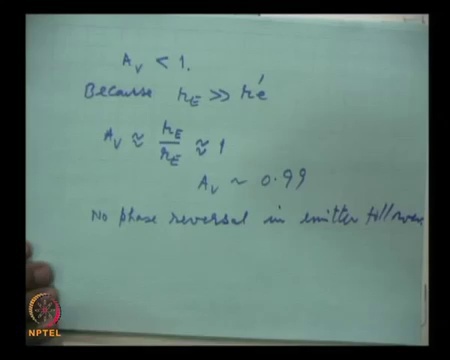 A_V < 1.
Because r_E >> r'e
A_V ≈ r_E / r_E ≈ 1
A_V ~ 0.99
No phase reversal in emitter follower
NPTEL